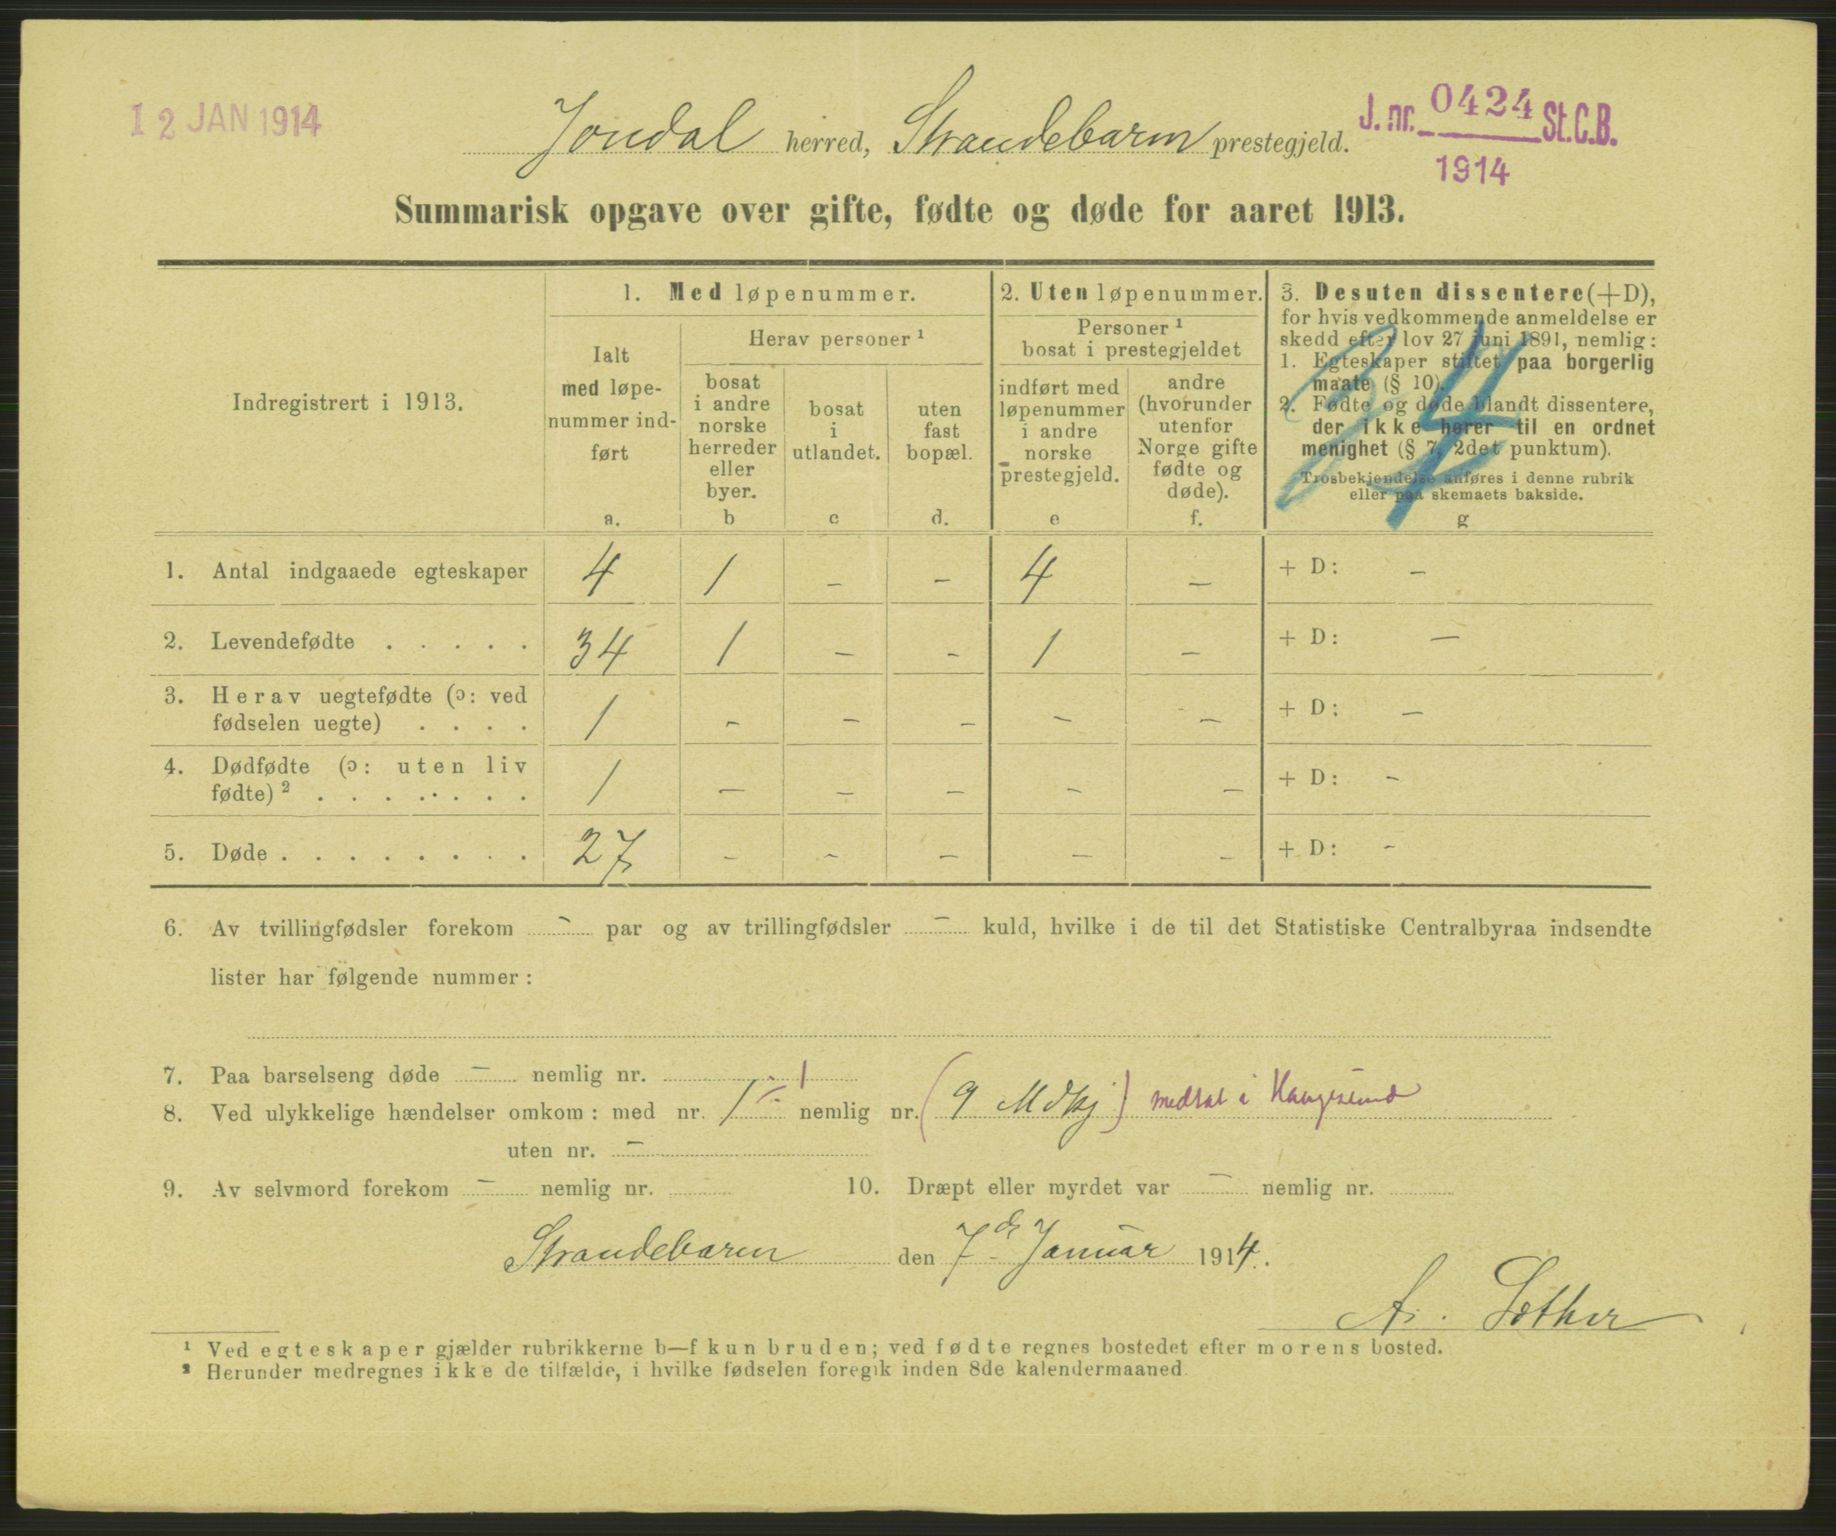 12 JAN 1914
Jondal herred, Strandebarm prestegjeld.
J. nr. 0424 St.C.B.
1914
Summarisk opgave over gifte, fødte og døde for aaret 1913.
Indregistrert i 1913.
1. Med løpenummer.
Ialt
med løpe-
nummer ind-
ført
a.
Herav personer ¹
bosat
i andre
norske
herreder
eller
byer.
b
bosat
i
utlandet.
c
uten
fast
bopæl.
d.
2. Uten løpenummer.
Personer ¹
bosat i prestegjeldet
indført med
løpenummer
i andre
norske
prestegjeld.
e
andre
(hvorunder
utenfor
Norge gifte
fødte og
døde).
f.
3. Desuten dissentere (+D),
for hvis vedkommende anmeldelse er
skedd efter lov 27 juni 1891, nemlig:
1. Egteskaper stiftet paa borgerlig
maate (§ 10).
2. Fødte og døde blandt dissentere,
der ikke hører til en ordnet
menighet (§ 7, 2det punktum).
Trosbekjendelse anføres i denne rubrik
eller paa skemaets bakside.
g
34
1. Antal indgaaede egteskaper 4 1 – – 4 – + D: –
2. Levendefødte . . . . . 34 1 – – 1 – + D: –
3. Herav uegtefødte (ɔ: ved
fødselen uegte) . . . . 1 – – – – – + D: –
4. Dødfødte (ɔ: uten liv
fødte) ² . . . . . . . 1 – – – – – + D: –
5. Døde . . . . . . . . 27 – – – – – + D: –
6. Av tvillingfødsler forekom – par og av trillingfødsler – kuld, hvilke i de til det Statistiske Centralbyraa indsendte
lister har følgende nummer:
7. Paa barselseng døde – nemlig nr.
8. Ved ulykkelige hændelser omkom: med nr. 1 ÷ 1 nemlig nr. (9 Mdkj) medtat i Haugesund
uten nr. –
9. Av selvmord forekom – nemlig nr. 10. Dræpt eller myrdet var – nemlig nr.
Strandebarm den 7de Januar 1914.
A. Sæther
¹ Ved egteskaper gjælder rubrikkerne b—f kun bruden; ved fødte regnes bostedet efter morens bosted.
² Herunder medregnes ikke de tilfælde, i hvilke fødselen foregik inden 8de kalendermaaned.